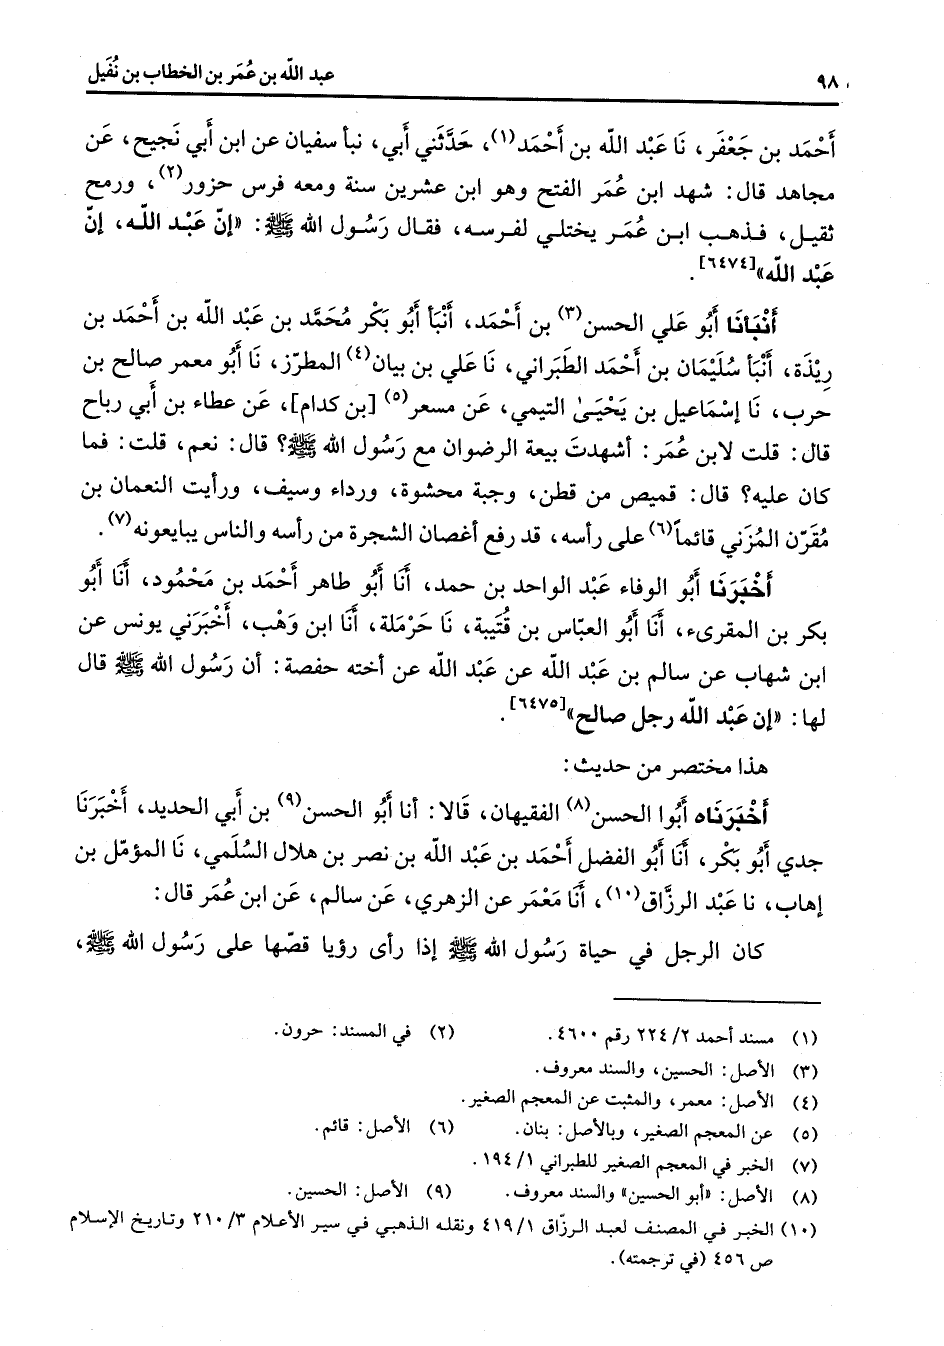 ٩٨ عبد اللّه بن عُمَر بن الخطاب بن نُفَيل
أَحْمَد بن جَعْفَر، نَا عَبْد اللّه بن أَحْمَد(١)، حَدَّثَني أَبي، نبأ سفيان عن ابن أَبي نَجيح، عَن
مجاهد قال: شهد ابن عُمَر الفتح وهو ابن عشرين سنة ومعه فرس حزور(٢)، ورمح
ثقيل، فذهب ابن عُمَر يختلي لفرسه، فقال رَسُول الله ﷺ: «إنّ عَبْد اللّه، إنّ
عَبْد اللّه»[٦٤٧٤].
أَنْبَانَا أَبُو علي الحسن(٣) بن أَحْمَد، أَنْبَأ أَبُو بَكْر مُحَمَّد بن عَبْد اللّه بن أَحْمَد بن
رِيْذَة، أَنْبَأ سُلَيْمَان بن أَحْمَد الطَبَراني، نَا علي بن بيان(٤) المطرّز، نَا أَبُو معمر صالح بن
حرب، نَا إسْمَاعيل بن يَحْيَىٰ التيمي، عَن مسعر(٥) [بن كدام]، عَن عطاء بن أَبي رباح
قال: قلت لابن عُمَر: أشهدتَ بيعة الرضوان مع رَسُول الله ﷺ؟ قال: نعم، قلت: فما
كان عليه؟ قال: قميص من قطن، وجبة محشوة، ورداء وسيف، ورأيت النعمان بن
مُقَرّن المُزَني قائماً(٦) على رأسه، قد رفع أغصان الشجرة من رأسه والناس يبايعونه(٧).
أَخْبَرَنَا أَبُو الوفاء عَبْد الواحد بن حمد، أَنَا أَبُو طاهر أَحْمَد بن مَحْمُود، أَنَا أَبُو
بكر بن المقرىء، أَنَا أَبُو العبّاس بن قُتَيبة، نَا حَرْمَلة، أَنَا ابن وَهْب، أَخْبَرَني يونس عن
ابن شهاب عن سالم بن عَبْد اللّه عن عَبْد اللّه عن أخته حفصة: أن رَسُول الله ﷺ قال
لها: «إن عَبْد اللّه رجل صالح»[٦٤٧٥].
هذا مختصر من حديث:
أَخْبَرَنَاه أَبُوا الحسن(٨) الفقيهان، قَالا: أنا أَبُو الحسن(٩) بن أَبي الحديد، أَخْبَرَنَا
جدي أَبُو بَكْر، أَنَا أَبُو الفضل أَحْمَد بن عَبْد اللّه بن نصر بن هلال السُلَمي، نَا المؤمّل بن
إهاب، نا عَبْد الرزَّاق(١٠)، أَنَا مَعْمَر عن الزهري، عَن سالم، عَن ابن عُمَر قال:
كان الرجل في حياة رَسُول الله ﷺ إذا رأى رؤيا قصّها على رَسُول الله ﷺ،
(١) مسند أحمد ٢/ ٢٢٤ رقم ٤٦٠٠. (٢) في المسند: حرون.
(٣) الأصل: الحسين، والسند معروف.
(٤) الأصل: معمر، والمثبت عن المعجم الصغير.
(٥) عن المعجم الصغير، وبالأصل: بنان. (٦) الأصل: قائم.
(٧) الخبر في المعجم الصغير للطبراني ١/ ١٩٤.
(٨) الأصل: «أبو الحسين» والسند معروف. (٩) الأصل: الحسين.
(١٠) الخبر في المصنف لعبد الرزّاق ١/ ٤١٩ ونقله الذهبي في سير الأعلام ٣/ ٢١٠ وتاريخ الإسلام
ص ٤٥٦ (في ترجمته).